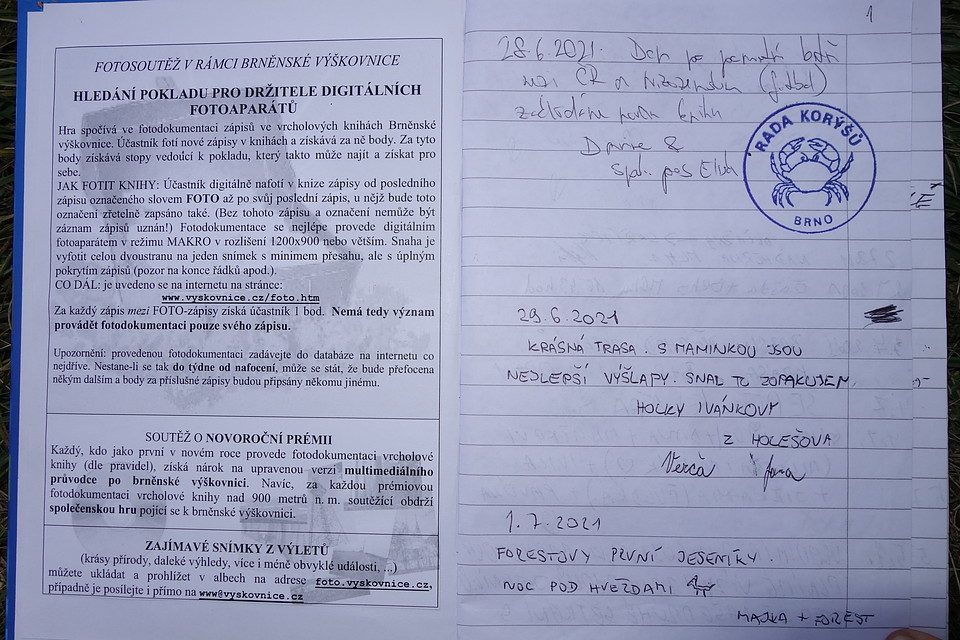 FOTOSOUTĚŽ V RÁMCI BRNĚNSKÉ VÝŠKOVNICE
HLEDÁNÍ POKLADU PRO DRŽITELE DIGITÁLNÍCH
FOTOAPARÁTŮ
Hra spočívá ve fotodokumentaci zápisů ve vrcholových knihách Brněnské
výškovnice. Účastník fotí nové zápisy v knihách a získává za ně body. Za tyto
body získává stopy vedoucí k pokladu, který takto může najít a získat pro
sebe.
JAK FOTIT KNIHY: Účastník digitálně nafotí v knize zápisy od posledního
zápisu označeného slovem FOTO až po svůj poslední zápis, u nějž bude toto
označení zřetelně zapsáno také. (Bez tohoto zápisu a označení nemůže být
záznam zápisů uznán!) Fotodokumentace se nejlépe provede digitálním
fotoaparátem v režimu MAKRO v rozlišení 1200x900 nebo větším. Snaha je
vyfotit celou dvoustranu na jeden snímek s minimem přesahu, ale s úplným
pokrytím zápisů (pozor na konce řádků apod.).
CO DÁL: je uvedeno se na internetu na stránce:
www.vyskovnice.cz/foto.htm
Za každý zápis mezi FOTO-zápisy získá účastník 1 bod. Nemá tedy význam
provádět fotodokumentaci pouze svého zápisu.
Upozornění: provedenou fotodokumentaci zadávejte do databáze na internetu co
nejdříve. Nestane-li se tak do týdne od nafocení, může se stát, že bude přefocena
někým dalším a body za příslušné zápisy budou připsány někomu jinému.
SOUTĚŽ O NOVOROČNÍ PRÉMII
Každý, kdo jako první v novém roce provede fotodokumentaci vrcholové
knihy (dle pravidel), získá nárok na upravenou verzi multimediálního
průvodce po brněnské výškovnici. Navíc, za každou prémiovou
fotodokumentaci vrcholové knihy nad 900 metrů n. m. soutěžící obdrží
společenskou hru pojící se k brněnské výškovnici.
ZAJÍMAVÉ SNÍMKY Z VÝLETŮ
(krásy přírody, daleké výhledy, více i méně obvyklé události, ...)
můžete ukládat a prohlížet v albech na adrese foto.vyskovnice.cz,
případně je posílejte i přímo na www@vyskovnice.cz
1
28.6.2021. Den po
mezi ČR a (fotbal)
zakládáme novou knihu
&
RADA KORÝŠŮ
BRNO
29.6.2021
KRÁSNÁ TRASA. S MAMINKOU JSOU
NEJLEPŠÍ VÝŠLAPY. SNAD TO ZOPAKUJEM.
HOLKY IVÁNKOVY
Z HOLEŠOVA
Verča i Jana
1.7.2021
FORESTOVY PRVNÍ JESENÍKY.
NOC POD HVĚZDAMI
MAJKA + FOREST